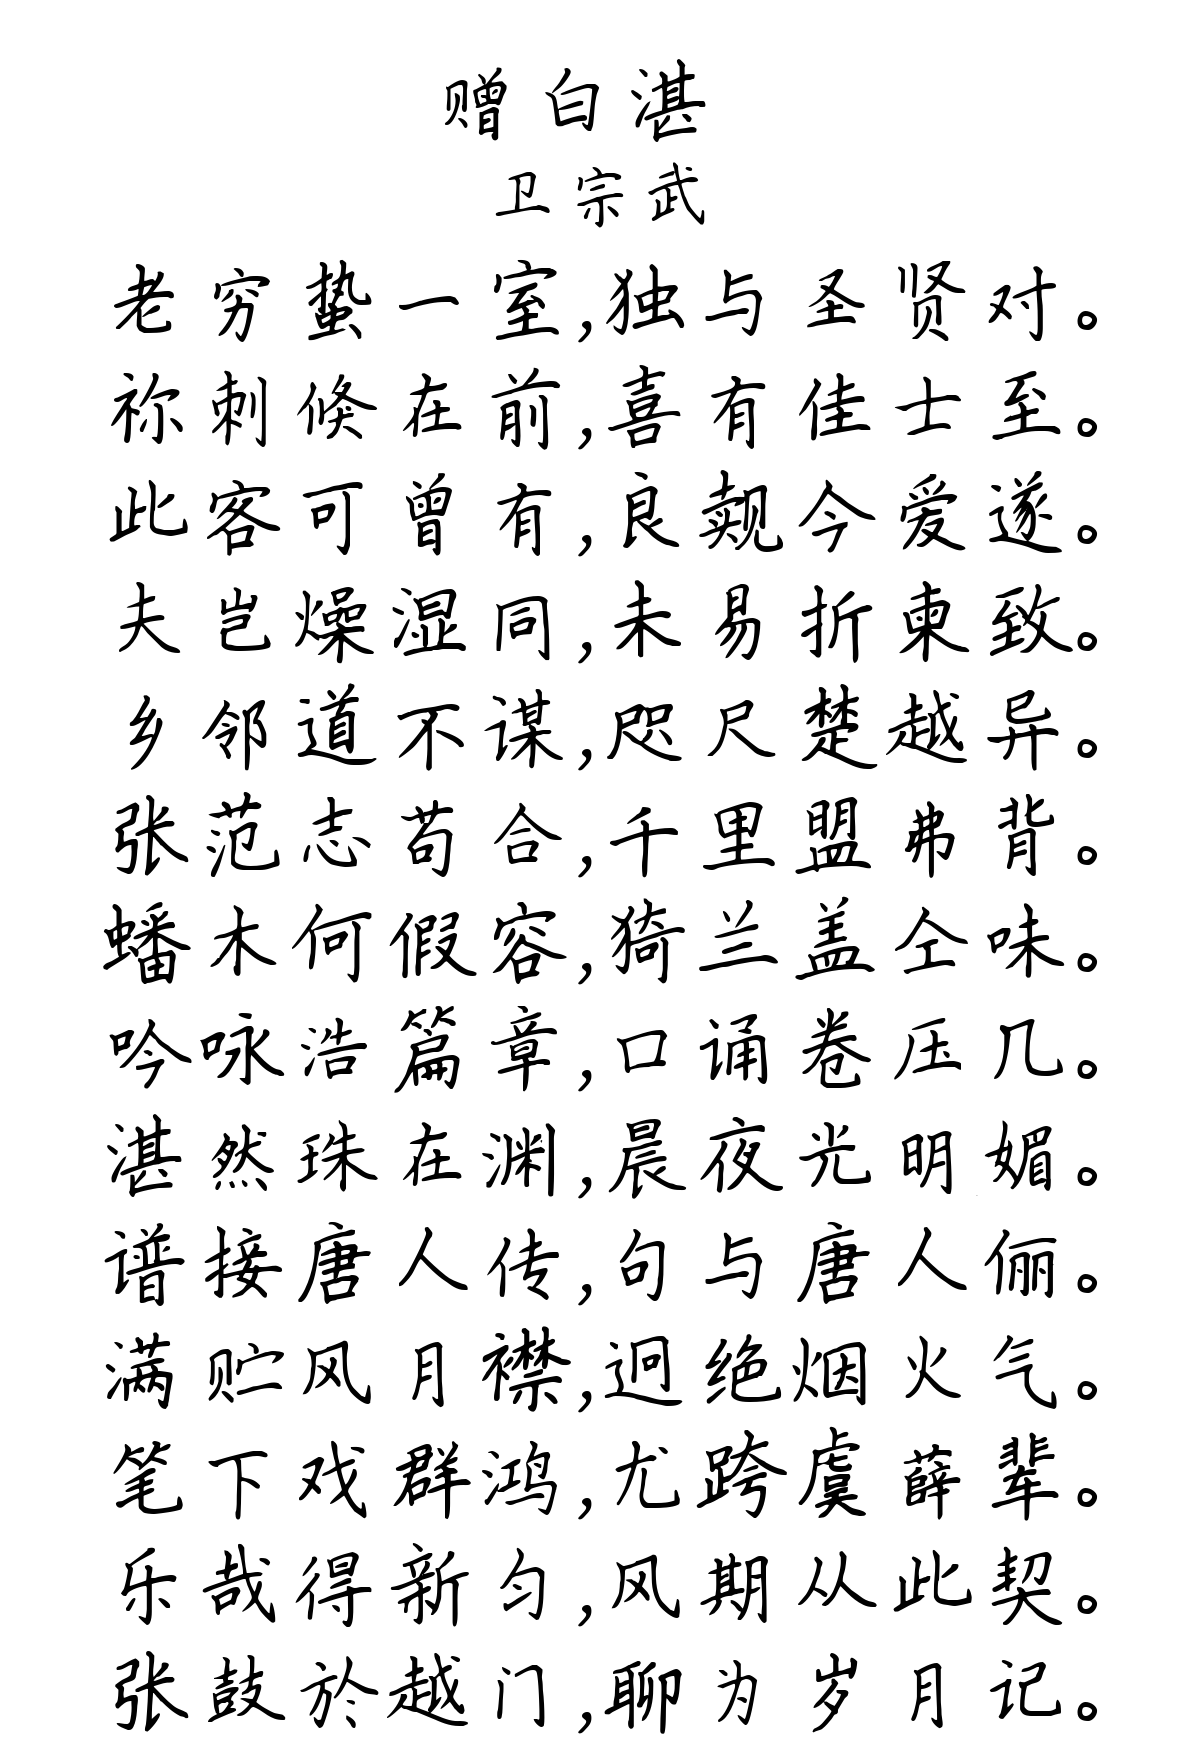 赠白湛
卫宗武
老穷蛰一室,独与圣贤对。
祢刺倏在前,喜有佳士至。
此客可曾有,良觌今爱遂。
夫岂燥湿同,未易折柬致。
乡邻道不谋,咫尺楚越异。
张范志苟合,千里盟弗背。
蟠木何假容,猗兰盖仝味。
吟咏浩篇章,口诵卷压几。
湛然珠在渊,晨夜光明媚。
谱接唐人传,句与唐人俪。
满贮风月襟,迥绝烟火气。
笔下戏群鸿,尤跨虞薛辈。
乐哉得新匀,风期从此契。
张鼓於越门,聊为岁月记。